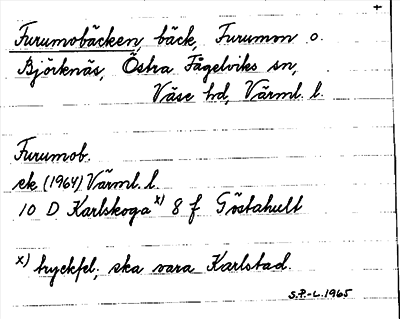 +
Furumobäcken, bäck, Furumon o.
Björknäs, Östra Fågelviks sn,
Väse hd, Värml. l.
Furumob.
ek. (1964) Värml. l.
10 D Karlskoga x) 8 f Göstahult
x) tryckfel, ska vara Karlstad.
S.P.-L. 1965